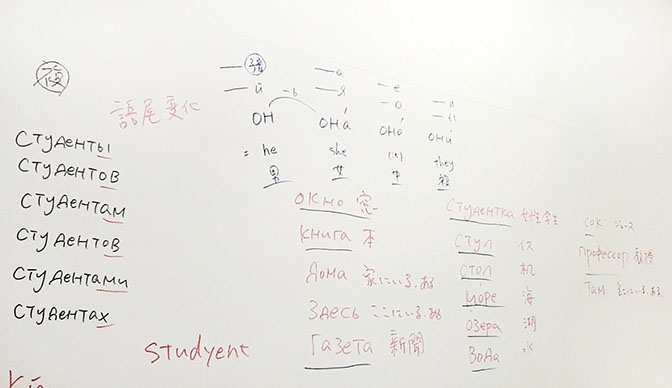 複
語尾変化
студенты
студентов
студентам
студентов
студентами
студентах
studyent
— 子音 — а — е — и
— й — я — о — ы
—ь
он она́ оно́ они́
= he she (it) they
男 女 中 複
окно 窓
книга 本
дома 家にいる、ある
здесь ここにいる、ある
газета 新聞
студентка 女性 学生
стул イス
стол 机
море 海
озера 湖
вода 水
сок ジュース
профессор 教授
там